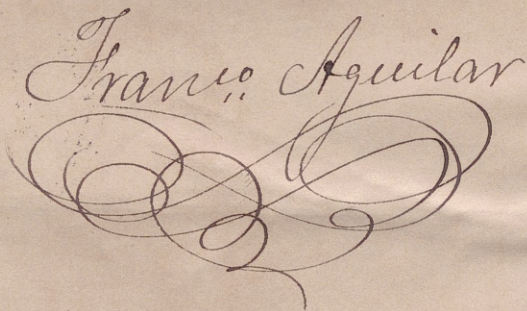 Franco Aguilar